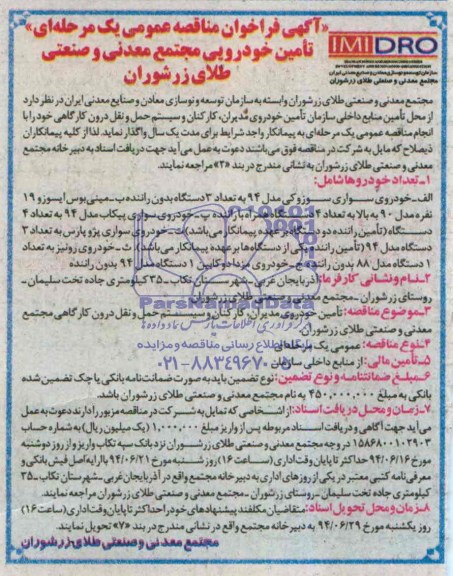 «آگهی فراخوان مناقصه عمومی یک مرحله‌ای»
تأمین خودرویی مجتمع معدنی و صنعتی
طلای زرشوران
IMIDRO
سازمان توسعه و نوسازی معادن و صنایع معدنی ایران
مجتمع معدنی و صنعتی طلای زرشوران
مجتمع معدنی و صنعتی طلای زرشوران وابسته به سازمان توسعه و نوسازی معادن و صنایع معدنی ایران در نظر دارد
از محل تأمین منابع داخلی سازمان تأمین خودروی مدیران، کارکنان و سیستم حمل و نقل درون کارگاهی خود را با
انجام مناقصه عمومی یک مرحله‌ای به پیمانکار واجد شرایط برای مدت یک سال واگذار نماید. لذا از کلیه پیمانکاران
ذیصلاح که مایل به شرکت در مناقصه فوق می باشند دعوت به عمل می آید جهت دریافت اسناد به دبیرخانه مجتمع
معدنی و صنعتی طلای زرشوران به نشانی مندرج در بند «۲» مراجعه نمایند.
۱ـ تعداد خودروها شامل:
الف ـ خودروی سواری سوزوکی مدل ۹۴ به تعداد ۳ دستگاه بدون راننده ب ـ مینی بوس ایسوزو ۱۹
نفره مدل ۹۰ به بالا به تعداد ۴ دستگاه همراه با راننده پ ـ خودروی سواری پیکاب مدل ۹۴ به تعداد ۴
دستگاه (تأمین راننده دو دستگاه بر عهده پیمانکار می باشد) ت ـ خودروی سواری پژو پارس به تعداد ۳
دستگاه مدل ۹۴ (تأمین راننده یکی از دستگاه‌ها بر عهده پیمانکار می باشد). ث ـ خودروی رونیز به تعداد
۱ دستگاه مدل ۸۸ بدون راننده ج ـ خودروی مزدا دو کابین ۱ دستگاه مدل ۹۴ بدون راننده
۲ـ نام و نشانی کارفرما: آذربایجان غربی ـ شهرستان تکاب ـ ۳۵ کیلومتری جاده تخت سلیمان ـ
روستای زرشوران ـ مجتمع معدنی و صنعتی طلای زرشوران
۳ـ موضوع مناقصه: تأمین خودروی مدیران، کارکنان و سیستم حمل و نقل درون کارگاهی مجتمع
معدنی و صنعتی طلای زرشوران.
۴ـ نوع مناقصه: عمومی یک مرحله‌ای
۵ـ تأمین مالی: از منابع داخلی سازمان
۶ـ مبلغ ضمانتنامه و نوع تضمین: نوع تضمین باید به صورت ضمانت نامه بانکی یا چک تضمین شده
بانکی به مبلغ ۴۵۰,۰۰۰,۰۰۰ به نام مجتمع معدنی و صنعتی طلای زرشوران باشد.
۷ـ زمان و محل دریافت اسناد: از اشخاصی که تمایل به شرکت در مناقصه مزبور را دارند دعوت به عمل
می آید جهت آگاهی و دریافت اسناد مربوطه پس از واریز مبلغ ۱,۰۰۰,۰۰۰ (یک میلیون ریال) به شماره حساب
۱۵۸۶۸۰۰۱۰۲۹۰۳ در وجه مجتمع معدنی و صنعتی طلای زرشوران نزد بانک سپه تکاب واریز و از روز دوشنبه
مورخ ۹۴/۰۶/۱۶ حداکثر تا پایان وقت اداری (ساعت ۱۶) روز شنبه مورخ ۹۴/۰۶/۲۱ با ارایه اصل فیش بانکی و
معرفی نامه کتبی معتبر در یکی از روزهای اداری به دبیرخانه مجتمع واقع در آذربایجان غربی ـ شهرستان تکاب ـ ۳۵
کیلومتری جاده تخت سلیمان ـ روستای زرشوران ـ مجتمع معدنی و صنعتی طلای زرشوران مراجعه نمایند.
۸ـ زمان و محل تحویل اسناد: متقاضیان مکلفند پیشنهادهای خود را حداکثر تا پایان وقت اداری (ساعت ۱۶)
روز یکشنبه مورخ ۹۴/۰۶/۲۹ به دبیرخانه مجتمع واقع در نشانی مندرج در بند «۷» تحویل نمایند.
مجتمع معدنی و صنعتی طلای زرشوران
ParsNamadData
پایگاه اطلاع رسانی مناقصه و مزایده
۰۲۱-۸۸۳۴۹۶۷۰-۵